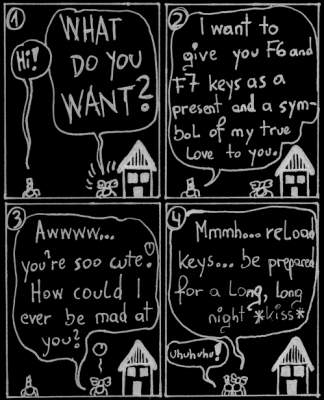 1
Hi!
WHAT
DO YOU
WANT?
2
I want to
give you F6 and
F7 keys as a
present and a sym-
bol of my true
Love to you.
3
Awwww...
you're soo cute!
How could I
ever be mad at
you?
4
Mmmh... reload
keys... be prepared
for a long, long
night *kiss*
Uhuhuhu!